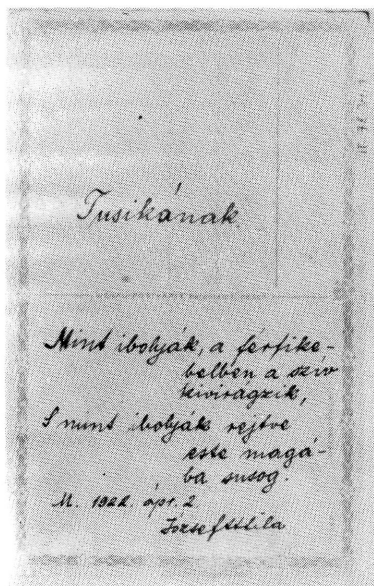 Tusikának
Mint ibolyák, a férfike-
belben a szív
kivirágzik,
S mint ibolyák rejtve
este magá-
ba susog.
M. 1922. ápr. 2.
József Attila